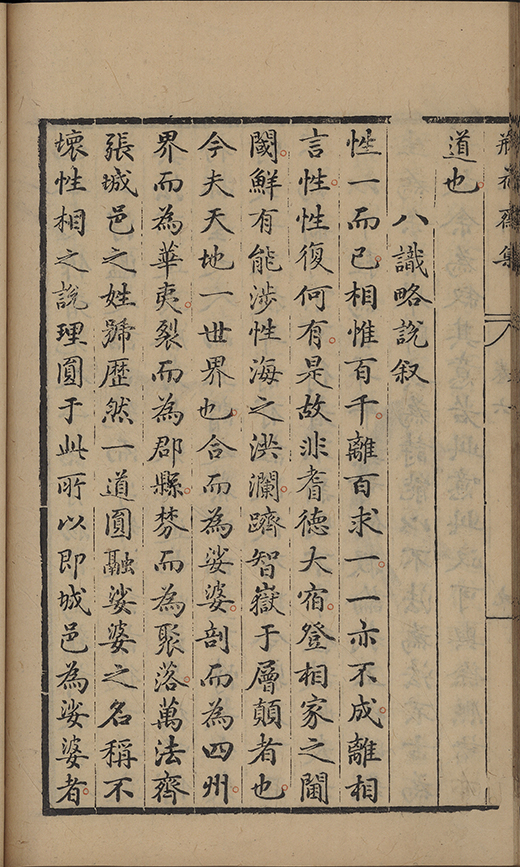 道也
八識略說叙
性一而已相惟百千離百求一一亦不成離相
言性性復何有是故非耆德大宿登相家之閫
閾鮮有能渉性海之洪瀾躋智嶽于層顛者也
今夫天地一世界也合而為娑婆剖而為四州
界而為華夷裂而為郡縣棼而為聚落萬法齊
張城邑之姓號歷然一道圓融娑婆之名稱不
壞性相之說理圓于此所以即城邑為娑婆者